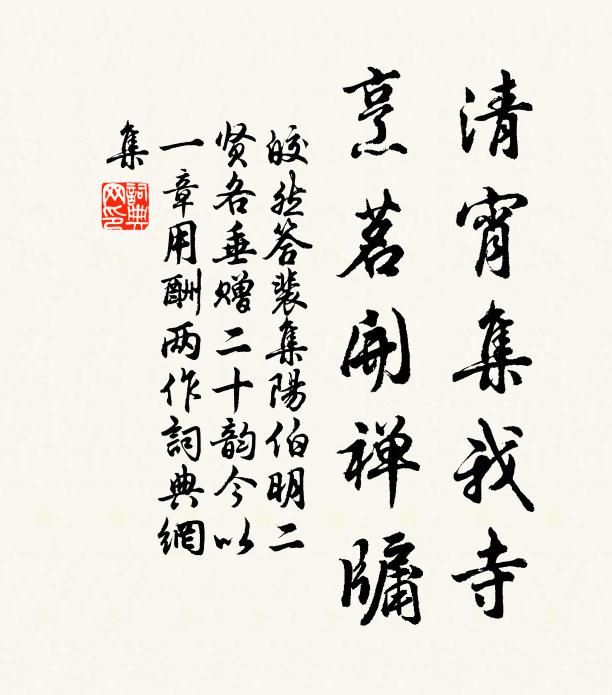 清宵集我寺
烹茗開禅牗
皎然答裴集陽伯明二
贤各垂赠二十韵今以
一章用酬两作詞典網
集
詞典
网印